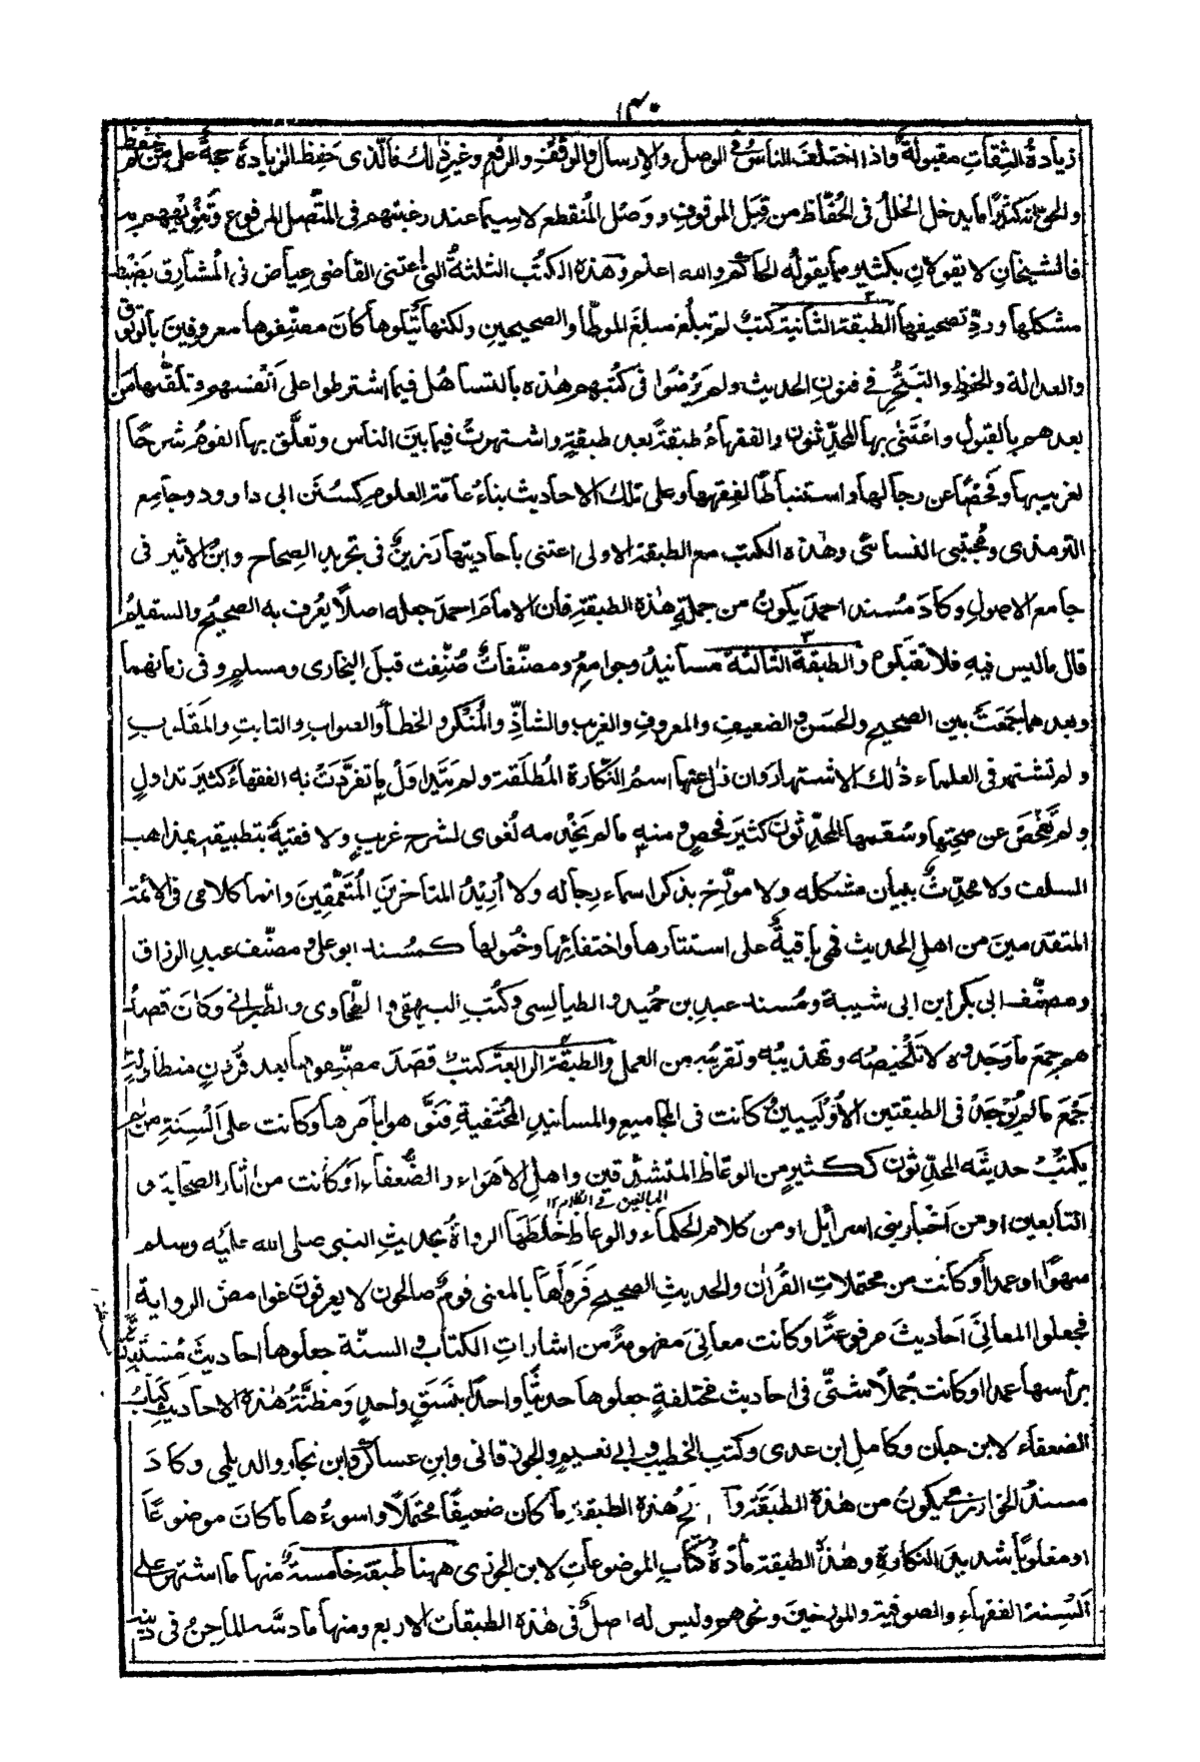 ١٣٠
زيادةُ الثِقاتِ مقبولةٌ واذا اختلفَ الناسُ في الوصل والإرسال والوقفِ والرفع وغيرِ ذٰلك فالّذى حَفِظ الزيادةَ حجةٌ على من لم يحفظ
والحق انّه كثيرًا ما يدخل الخللُ فى الحُفّاظ من قِبَل الموقوفِ ووصْل المُنقطع لا سِيّما عند رغبتهم فى المتَّصل المرفوعِ وتنويههم به
فالشيخانِ لا يقولانِ بكثيرٍ مما يقوله الحاكم والله اعلم وهٰذه الكُتُب الثلثةُ التى اعتنى القاضى عِياض فى المشارق بضبط
مشكلها وردِّ تصحيفها الطبقة الثانية كتبٌ لم تبلُغ مبلغَ الموطّأ والصحيحينِ ولكنها تتلوها كان مصنِّفوها معروفين بالوثوق
والعدالة والحفظِ والتبحُّرِ في فنونِ الحديث ولم يَرْضَوا فى كُتبهم هٰذه بالتساهُل فيما اشترطوا على أنفسهم وتلقّٰها مَن
بعدهم بالقبول واعْتَنٰى بها المحدّثون والفقهاءُ طبقةً بعد طبقةٍ واشتهرتْ فيما بينَ الناس وتعلَّق بها القوم شرحًا
لغريبها وفحْصًا عن رجالها واستنباطًا لفِقهها وعلى تلك الاحاديث بناءُ عامّة العلوم كسُنَن ابى داوود وجامعِ
الترمذى ومُجتبى النسائىّ وهٰذه الكتب مع الطبقة الاولى اعتنى باحاديثها رَزينٌ فى تجريد الصِحاح وابن الاثير فى
جامع الاصولِ وكادَ مُسند احمدَ يكونُ من جملةِ هٰذه الطبقةِ فان الامامَ احمدَ جعله اصلًا يُعرف به الصحيحُ والسقيمُ
قال ما ليس فيه فلا تقبَلوه والطبقة الثالثة مسانيدُ وجوامعُ ومصنّفاتٌ صُنِّفت قبلَ البخارى ومسلمٍ وفى زمانهما
وبعدهما جَمَعَتْ بين الصحيح والحسَن والضعيفِ والمعروفِ والغريب والشاذِّ والمُنكَر والخطأ والصواب والثابتِ والمَقلوبِ
ولم تشتهر فى العلماء ذٰلك الاشتهارَ وان زٰل عنها اسمُ النَّكارة المُطلَقة ولم يَتداولْ ما تفرَّدتْ به الفقهاءُ كثيرَ تداولٍ
ولم تفْحَصْ عن صحّتها وسُقمها المحدّثون كثيرَ فحصٍ ومنه ما لم يَخْدِمه لُغوى لشرح غريبٍ ولا فقيهٌ بتطبيقه بمذاهب
السلف ولا محدِّثٌ ببيان مشكله ولا مؤرّخ بذكر اسماء رجاله ولا اُريدُ المتاخرينَ المُتعمّقينَ وانما كلامى فى الائمّة
المتقدمينَ من اهلِ الحديث فهى باقيةٌ على استتارها واختفائها وخُمولها كمُسند ابو على ومصنّف عبدِ الرزاق
ومصنّف ابى بكر ابن ابى شيبة ومُسند عبدِ بن حُميد والطيالِسى وكُتبِ البيهقى والطَّحاوى والطَّبرانى وكانَ قصدُ
هم جمعَ ما وجدوه لا تلْخيصُه وتهذيبُه وتقريبُه من العمل والطبقة الرابعة كتبٌ قصَدَ مصنّفوها بعد قرونٍ متطاولةٍ
جَمْعَ ما لم يُوْجَدْ فى الطبقتين الأُوْلَيين كانت فى المجاميعِ والمسانيدِ المُختفيةِ فنَوَّهوا بأمرها وكانت على اَلْسِنَةِ من لم
يكتبْ حديثه المحدّثون ككثيرٍ من الوعّاظ المتشدّقين واهلِ الاهواء والضُّعفاء او كانت من اٰثار الصحابة و
المبالغين فى الكلام ١٢
التابعين او من اَخبار بنى اسرائيل او من كلام الحكماء والوعاظ خَلَطَها الرواةُ بحديثِ النبى صلى الله عليه وسلم
سهوًا او عمدًا أو كانت من محتملاتِ القُراٰن والحديثِ الصحيحِ فَرَوَاها بالمعنى قومٌ صالحون لا يعرفون غوامض الرواية
فجعلوا المعانِىَ اَحاديثَ مرفوعةً او كانت معانِىَ مفهومةً من اشاراتِ الكتاب والسنّة جعلوها احاديثَ مُستبِدّةً
برأسها عمدًا او كانت جُملًا شتّى فى احاديث مختلفةٍ جعلوها حديثًا واحدًا بنسَقٍ واحدٍ ومَظِنَّةُ هٰذه الاحاديثِ كتابُ
الضعفاء لابن حبان وكاملِ ابن عدى وكُتبِ الخطيب وابى نعيم والجوزقانى وابنِ عساكر وابن نجار والديلمى وكادَ
مسندُ الخوارزمى يكونُ من هٰذه الطبقَة وا هٰذه الطبقة ما كان ضعيفًا محتملًا واسوءُها ما كان موضوعًا
او مقلوبًا شديدَ النكارةِ وهٰذه الطبقة مادّةُ كتاب الموضوعاتِ لابن الجوزى ههنا طبقة خامسةٌ منها ما اشتهر على
اَلْسِنة الفقهاءِ والصوفية والمؤرخينَ ونحوهم وليس له اصلٌ فى هٰذه الطبقات الاربع ومنها ما دسّه الماجنُ فى دينه